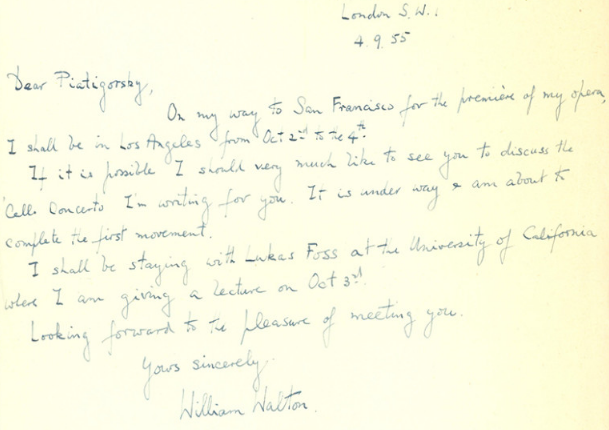 London S.W.1
4.9.55
Dear Piatigorsky,
On my way to San Francisco for the première of my opera,
I shall be in Los Angeles from Oct 2nd to the 4th.
If it is possible I should very much like to see you to discuss the
'Cello Concerto I'm writing for you. It is under way & am about to
complete the first movement.
I shall be staying with Lukas Foss at the University of California
where I am giving a lecture on Oct 3rd.
Looking forward to the pleasure of meeting you.
Yours sincerely.
William Walton.